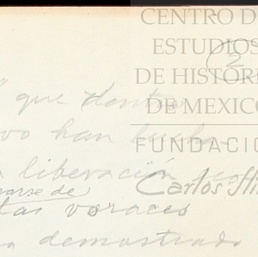 CENTRO D
ESTUDIOS
(2
DE HISTOR
DE MEXICO
FUNDACIÓ
Carlos Sli
que dentro
vo han lucha
liberación
rarse de
tas voraces
demostrado